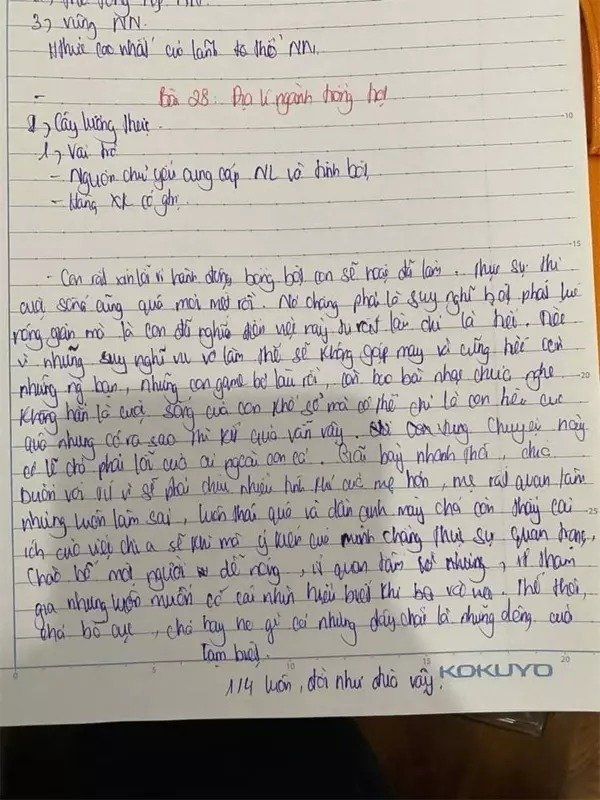 3, vùng NN.
Hthức cao nhất củ lãnh tổ thổ NN.
-
Bài 28: Địa lí ngành trồng trọt
I, Cây lương thực.
1, Vai trò
- Nguồn chủ yếu cung cấp NL và tinh bột,
- Hàng XK có giá.
- Con rất xin lỗi vì hành động bồng bột con sẽ hoặc đã làm. Thực sự thì
cuộc sống cũng quá mỏi mệt rồi. Nó chẳng phải là suy nghĩ bột phát
trong gian mà là con đã nghĩ đến việc này từ rất lâu chỉ là hơi. Tiếc
vì những suy nghĩ vu vơ làm thế sẽ không gặp mày và cũng tiếc
những ng bạn, những con game bỏ lâu rồi, còn bao bài nhạc chưa nghe
không hẳn là cuộc sống của con khổ sở mà có thể chỉ là con tiêu cực
quá nhưng có ra sao thì kết quả vẫn vậy. con Chuyện này
có lẽ chả phải lỗi của ai ngoài con cả. Giãi bày nhanh thôi, chứ
buồn với vì sẽ phải chịu nhiều tính khí của mẹ hơn, mẹ rất quan tâm
nhưng luôn làm sai, luôn thái quá và dần anh mày chả còn thấy cái
ích của việc chia sẻ khi mà ý kiến của mình chẳng thực sự quan trọng,
Chào bố một người dễ nóng, ít quan tâm nhưng, ít tham
gia nhưng luôn muốn có cái nhìn hiểu biết khi ba vơ va. Thế thôi,
chả bố cục, chả hay ho gì cả nhưng đấy chỉ là những dòng của
tạm biệt.
1/4 luôn, đời như đùa vậy.
KOKUYO
10
15
20
25
0
5
10
15
20